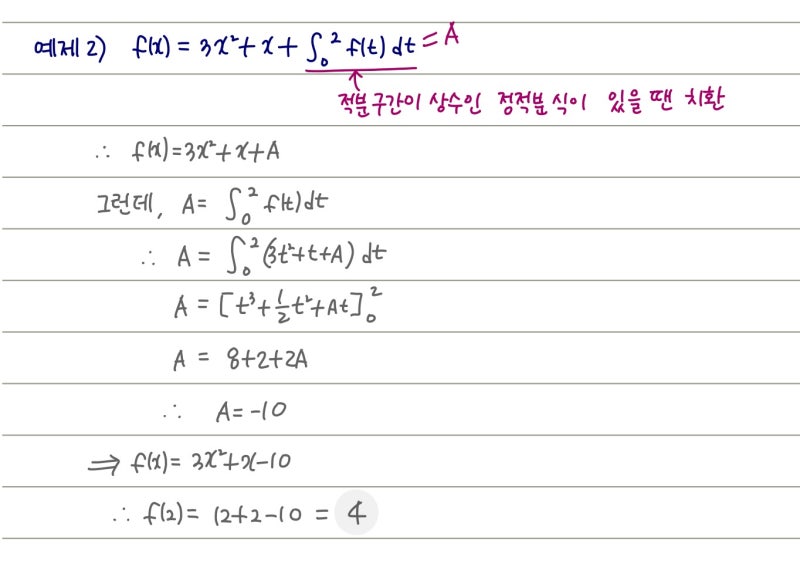 예제2) f(x) = 3x²+x+∫₀² f(t)dt = A
적분구간이 상수인 정적분식이 있을 땐 치환
∴ f(x)=3x²+x+A
그런데, A= ∫₀² f(t)dt
∴ A = ∫₀² (3t²+t+A) dt
A = [t³+½t²+At]₀²
A = 8+2+2A
∴ A=-10
⇒ f(x)= 3x²+x-10
∴ f(2)= 12+2-10 = 4